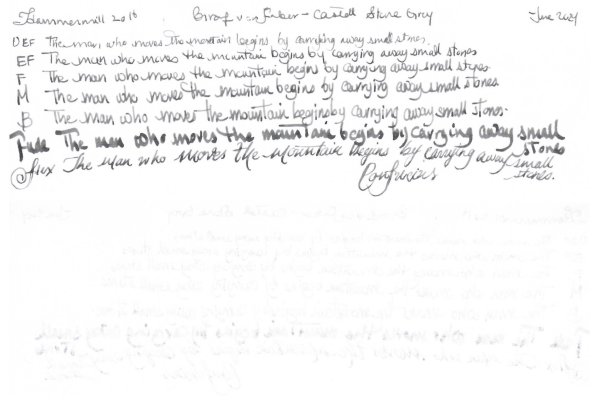 Hammermill 20lb Graf von Faber-Castell Stone Grey June 2024
UEF The man who moves the mountain begins by carrying away small stones.
EF The man who moves the mountain begins by carrying away small stones
F The man who moves the mountain begins by carrying away small stones
M The man who moves the mountain begins by carrying away small stones.
B The man who moves the mountain begins by carrying away small stones.
Fude The man who moves the mountain begins by carrying away small stones
flex The man who moves the mountain begins by carrying away small stones.
Confucius